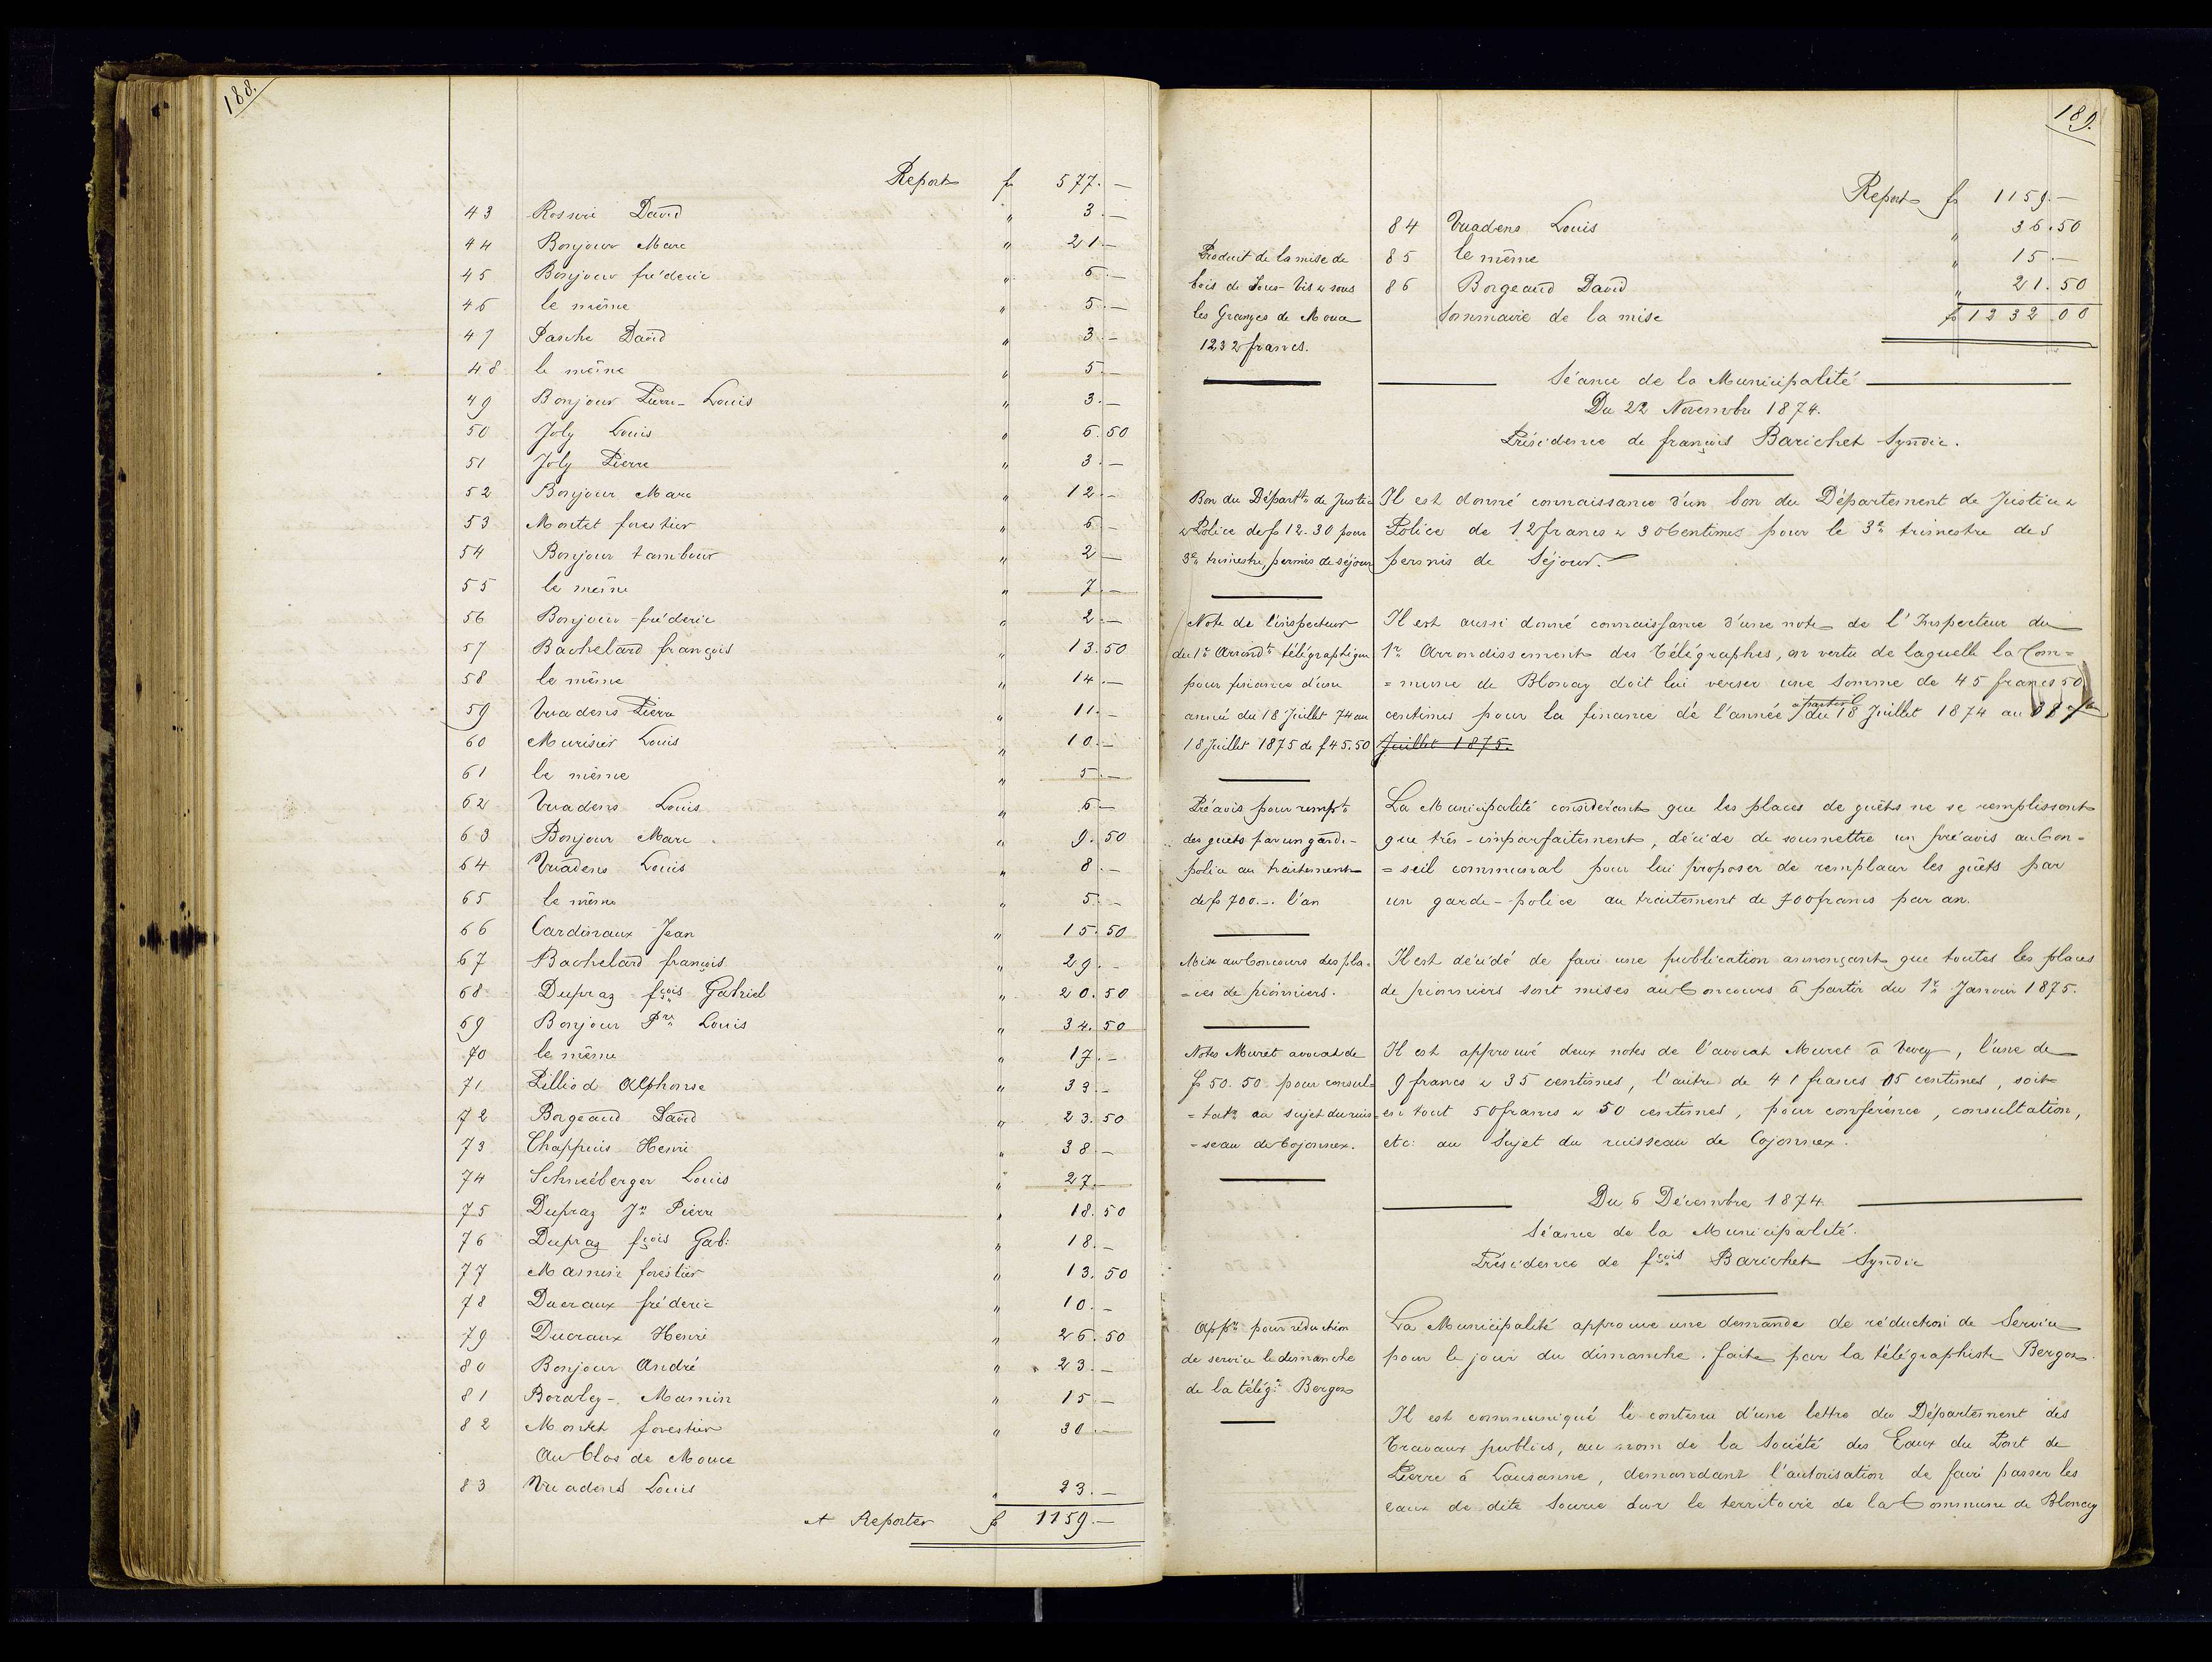 188.
Report fr 577.—
43 Rossire David " 3.—
44 Bonjour Marc " 21.—
45 Bonjour fréderic " 6.—
46 le même " 5.—
47 Pasche David " 3.—
48 le même " 5.—
49 Bonjour Pierre-Louis " 3.—
50 Joly Louis " 6.50
51 Joly Pierre " 3.—
52 Bonjour Marc " 12.—
53 Montet forestier " 6.—
54 Bonjour tambour " 2.—
55 le même " 7.—
56 Bonjour fréderic " 2.—
57 Bachelard françois " 13.50
58 le même " 14.—
59 Vuadens Pierre " 11.—
60 Murisier Louis " 10.—
61 le même " 5.—
62 Vuadens Louis " 6.—
63 Bonjour Marc " 9.50
64 Vuadens Louis " 8.—
65 le même " 5.—
66 Cardinaux Jean " 15.50
67 Bachelard françois " 29.—
68 Dupraz fçois Gabriel " 20.50
69 Bonjour Pre Louis " 34.50
70 le même " 17.—
71 Pilliod Alphonse " 33.—
72 Borgeaud David " 23.50
73 Chappuis Henri " 38.—
74 Schneéberger Louis " 27.—
75 Dupraz Jn Pierre " 18.50
76 Dupraz fçois Gab: " 18.—
77 Mamin forestier " 13.50
78 Ducraux fréderic " 10.—
79 Ducraux Henri " 26.50
80 Bonjour André " 23.—
81 Boraley-Mamin " 15.—
82 Montet forestier " 30.—
Au Clos de Mouce
83 Vuadens Louis " 23.—
A Reporter fr 1159.—
189.
Report fr 1159.—
84 Vuadens Louis " 36.50
85 le même " 15.—
86 Borgeaud David " 21.50
Sommaire de la mise fr 1232.00
Produit de la mise de
bois de Sous-Vis & sous
les Granges de Moua
1232 francs.
Séance de la Municipalité
Du 22 Novembre 1874.
Présidence de françois Barichet Syndic.
Bon du Départt de Justice
& Police de fr 12.30 pour
3e trimestre, permis de séjour
Il est donné connaissance d'un bon du Département de Justice &
Police de 12 francs & 30 Centimes pour le 3e trimestre des
permis de Séjour.
Note de l'inspecteur
du 1r Arrondt télégraphique
pour finance d'une
année du 18 Juillet 74 au
18 Juillet 1875 de f 45.50
Il est aussi donné connaissance d'une note de l'Inspecteur du
1r Arrondissement des Télégraphes, en vertu de laquelle la Com=
=mune de Blonay doit lui verser une somme de 45 francs 50
centimes pour la finance de l'année à partir du 18 Juillet 1874 au
Juillet 1875.
Préavis pour rempt
des guets par un garde-
police au traitement
de fr 700.-. l'an
La Municipalité considérant que les places de guêts ne se remplissent
que très-imparfaitement, décide de soumettre un préavis au Con=
=seil communal pour lui proposer de remplacer les guêts par
un garde-police au traitement de 700 francs par an.
Mise au Concours des pla=
=ces de pionniers.
Il est décidé de faire une publication annonçant que toutes les places
de pionniers sont mises au Concours à partir du 1r Janvier 1875.
Notes Muret avocat de
fr 50.50 pour consul=
=tatn au sujet du ruis=
=seau de Cojonnex.
Il est approuvé deux notes de l'avocat Muret à Vevey, l'une de
9 francs & 35 centimes, l'autre de 41 francs 15 centimes, soit
en tout 50 francs & 50 centimes, pour conférence, consultation,
etc: au Sujet du ruisseau de Cojonnex.
Du 6 Décembre 1874.
Séance de la Municipalité.
Présidence de fçois Barichet Syndic
Appn pour réduction
de service le dimanche
de la télégte Bergoz
La Municipalité approuve une demande de réduction de Service
pour le jour du dimanche. faite par la télégraphiste Bergoz.
Il est communiqué le contenu d'une lettre du Département des
Travaux publics, au nom de la Société des Eaux du Pont de
Pierre à Lausanne, demandant l'autorisation de faire passer les
eaux de dite Source sur le territoire de la Commune de Blonay